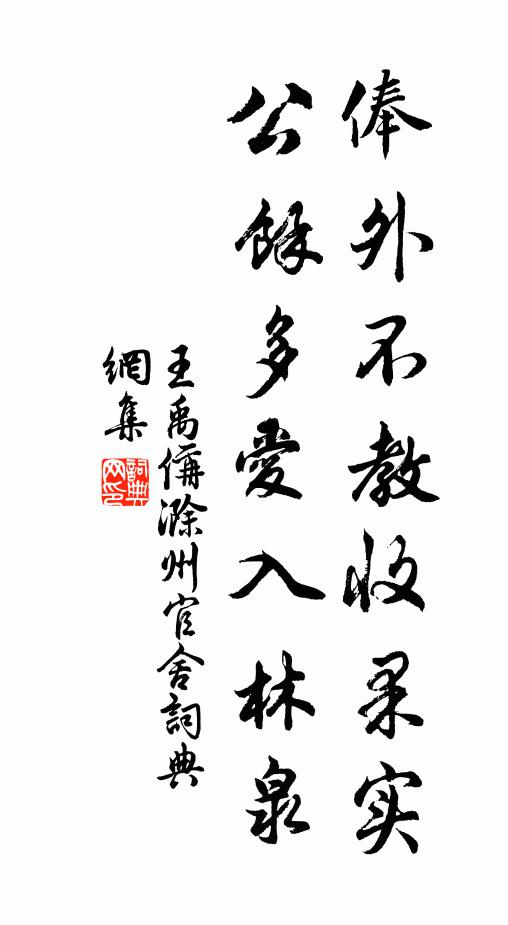 俸外不教收果实
公餘多愛入林泉
王禹偁滁州官舍詞典
網集
詞典网印